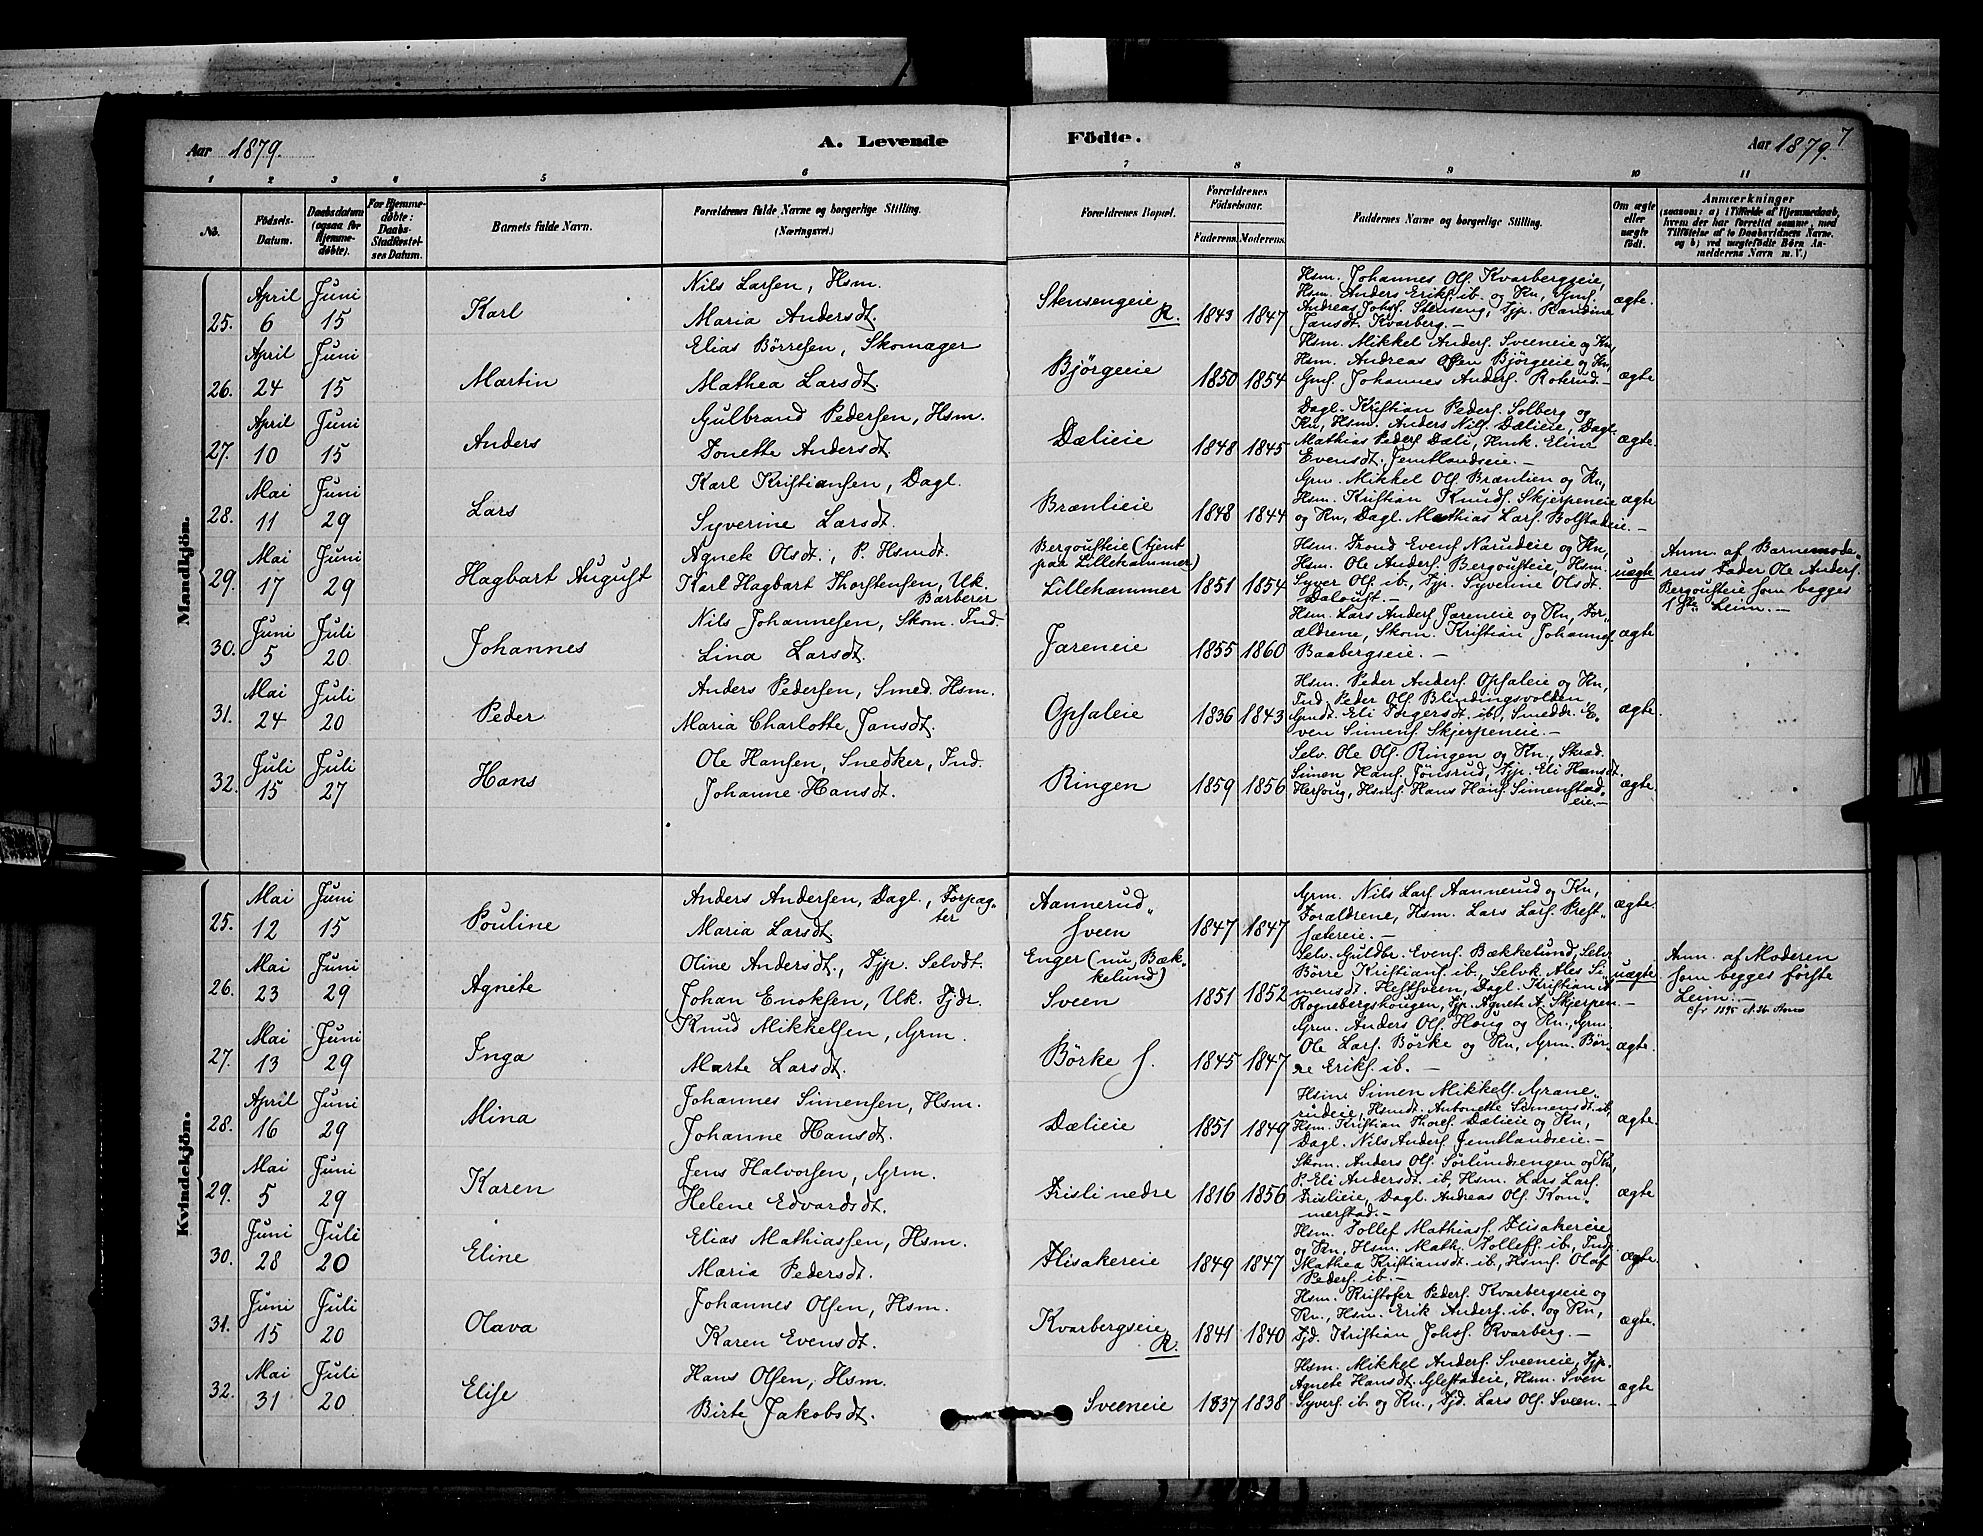 Aar 1879.
A. Levende Födte.
Aar 1879. 7
1 2 3 4 5 6 7 8 9 10 11
No.
Födsels-Datum.
Daabsdatum (ogsaa for Hjemme-döbte).
For Hjemme-döbte: Daabs-Stadfæstel-ses Datum.
Barnets fulde Navn.
Forældrenes fulde Navne og borgerlige Stilling.
(Næringsvei.)
Forældrenes Bopæl.
Forældrenes Födselsaar.
Faderens. Moderens.
Faddernes Navne og borgerlige Stilling.
Om ægte eller uægte födt.
Anmærkninger
(saasom: a) i Tilfælde af Hjemmedaab, hvem der har forrettet samme, med Tilföielse af to Daabsvidners Navne, og b) ved uægtefödte Börn Anmelderens Navn m. V.)
Mandkjön.
25. April 6 Juni 15 Karl
Nils Larsen, Hsm.
Maria Andersdt.
Stensengeie R. 1843 1847
Hsm. Johannes Ols. Kvarbergseie,
Hsm. Anders Eriks. ib. og Kn, Gmf.
Andreas Johs. Stenseng, Pjp. Randine
Jansdt. Kvarberg.—
ægte.
26. April 24 Juni 15 Martin
Elias Börresen, Skomager
Mathea Larsdt.
Bjørgeie 1850 1854
Hsm. Mikkel Anders. Sveeneie og Kn,
Hsm. Andreas Olsen Bjørgeie og Kn,
Gmf. Johannes Anders. Roterud.—
ægte
27. April 10 Juni 15 Anders
Gulbrand Pedersen, Hsm.
Tonette Andersdt.
Dælieie 1848 1845
Dagl. Kristian Peders. Solberg og
Kn, Hsm. Anders Nils. Dælieie, Dagl.
Mathias Peders. Dæli, Hmk. Eline
Evensdt. Jemtlandseie.—
ægte.
28. Mai 11 Juni 29 Lars
Karl Kristiansen, Dagl.
Syverine Larsdt.
Brænlieie 1848 1844
Grm. Mikkel Ols. Brænlien og Kn,
Hsm. Kristian Knuds. Skjerpeneie
og Kn, Dagl. Mathias Lars. Bolstadeie.—
ægte
29. Mai 17 Juni 29 Hagbart August
Agnek Olsdt., P. Hsmdt.
Karl Hagbart Thorstensen, Uk. Barberer
Bergousteie (tjent
paa Lillehammer)
Lillehammer 1851 1854
Hsm. Trond Evens. Narudeie og Kn,
Hsm. Ole Anders. Bergousteie, Hsm.
Syver Ols. ib., Pjp. Syverine Olsdt.
Daloust.—
uægte
Anm. af Barnemode-
rens Fader Ole Anders.
Bergousteie som begges
1ste Leierm.—
30. Juni 5 Juli 20 Johannes
Nils Johannesen, Skom. Ind.
Lina Larsdt.
Jareneie 1855 1860
Hsm. Lars Anders. Jareneie og Kn, For-
ældrene, Skom. Kristian Johannes.
Baabergseie.—
ægte
31. Mai 24 Juli 20 Peder
Anders Pedersen, Smed. Hsm.
Maria Charlotte Jansdt.
Opsaleie 1836 1843
Hsm. Peder Anders. Opsaleie og Kn,
Ind. Peder Ols. Blindingsvolden
Gmdt. Eli Torgersdt. ib., Smeddr. E-
ven Simens. Skjerpeneie.—
ægte.
32. Juli 15 Juli 27 Hans
Ole Hansen, Snedker, Ind.
Johanne Hansdt.
Ringen 1859 1856
Selv. Ole Ols. Ringen og Kn, Skræd.
Simen Hans. Jönsrud, Pjp. Eli Hansdt.
Hersoug, Hsms. Hans Hans. Simenstad-
eie.—
ægte.
Kvindekjön.
25. Mai 12 Juni 15 Pouline
Anders Andersen, Dagl., Forpag-
ter
Maria Larsdt.
Aannerud-
sveen 1847 1847
Grm. Nils Lars. Aannerud og Kn,
Forældrene, Hsm. Lars Lars. Prest-
sætereie.—
ægte.
26. Mai 23 Juni 29 Agnete
Oline Andersdt., Pjp. Selvdt.
Johan Enoksen, Uk. Tjdr.
Enger (nu Bæk-
kelund)
Sveen 1851 1852
Selv. Guldbr. Evens. Bækkelund, Selv
Börre Kristians. ib., Selvk. Ales Si-
mensdt. Hestsveen, Dagl. Kristian A
Rognebergshougen, Pjp. Agnete A. Skjerpen—
uægte
Anm. af Moderen
som begges förste
Leierm.—
cfr 1895 N. 26 Anm
27. Mai 13 Juni 29 Inga
Knud Mikkelsen, Grm.
Marte Larsdt.
Børke s. 1845 1847
Grm. Anders Ols. Houg og Kn, Grm.
Ole Lars. Börke og Kn, Grm. Bör-
re Eriks. ib.—
ægte.
28. April 16 Juni 29 Mina
Johannes Simensen, Hsm.
Johanne Hansdt.
Dælieie 1851 1849
Hsm. Simen Mikkels. Grane-
rudeie, Hsmdt. Antonette Simensdt. ib,
Hsm. Kristian Thors. Dælieie og Kn,
Dagl. Nils Anders. Jemtlandseie.—
ægte.
29. Mai 5 Juni 29 Karen
Jens Halvorsen, Grm.
Helene Edvardsdt.
Frisli nedre 1816 1856
Skom. Anders Ols. Sörlundsengen og Kn,
P. Eli Andersdt. ib, Hsm. Lars Lars.
Frislieie, Dagl. Andreas Ols. Kom-
merstad.—
ægte
30. Juni 28 Juli 20 Eline
Elias Mathiassen, Hsm.
Maria Pedersdt.
Flisakereie 1849 1847
Hsm. Tollef Mathias. Flisakereie
og Kn, Hsm. Math. Tollefs. ib, Ind.
Mathea Kristiansdt. ib., Hsms. Olaf
Peders. ib.—
ægte.
31. Juni 15 Juli 20 Olava
Johannes Olsen, Hsm.
Karen Evensdt.
Kvarbergseie R. 1841 1840
Hsm. Kristofer Peders. Kvarbergseie og
Kn, Hsm. Erik Anders. ib. og Kn,
Tjd. Kristian Johs. Kvarberg.—
ægte.
32. Mai 31 Juli 20 Elise
Hans Olsen, Hsm.
Birte Jakobsdt.
Sveeneie 1837 1838
Hsm. Mikkel Anders. Sveeneie, Pjp.
Agnete Hansdt. Glestadeie, Hsm. Sven
Syvers. ib. og Kn., Tjd. Lars Ols. Sveen.—
ægte